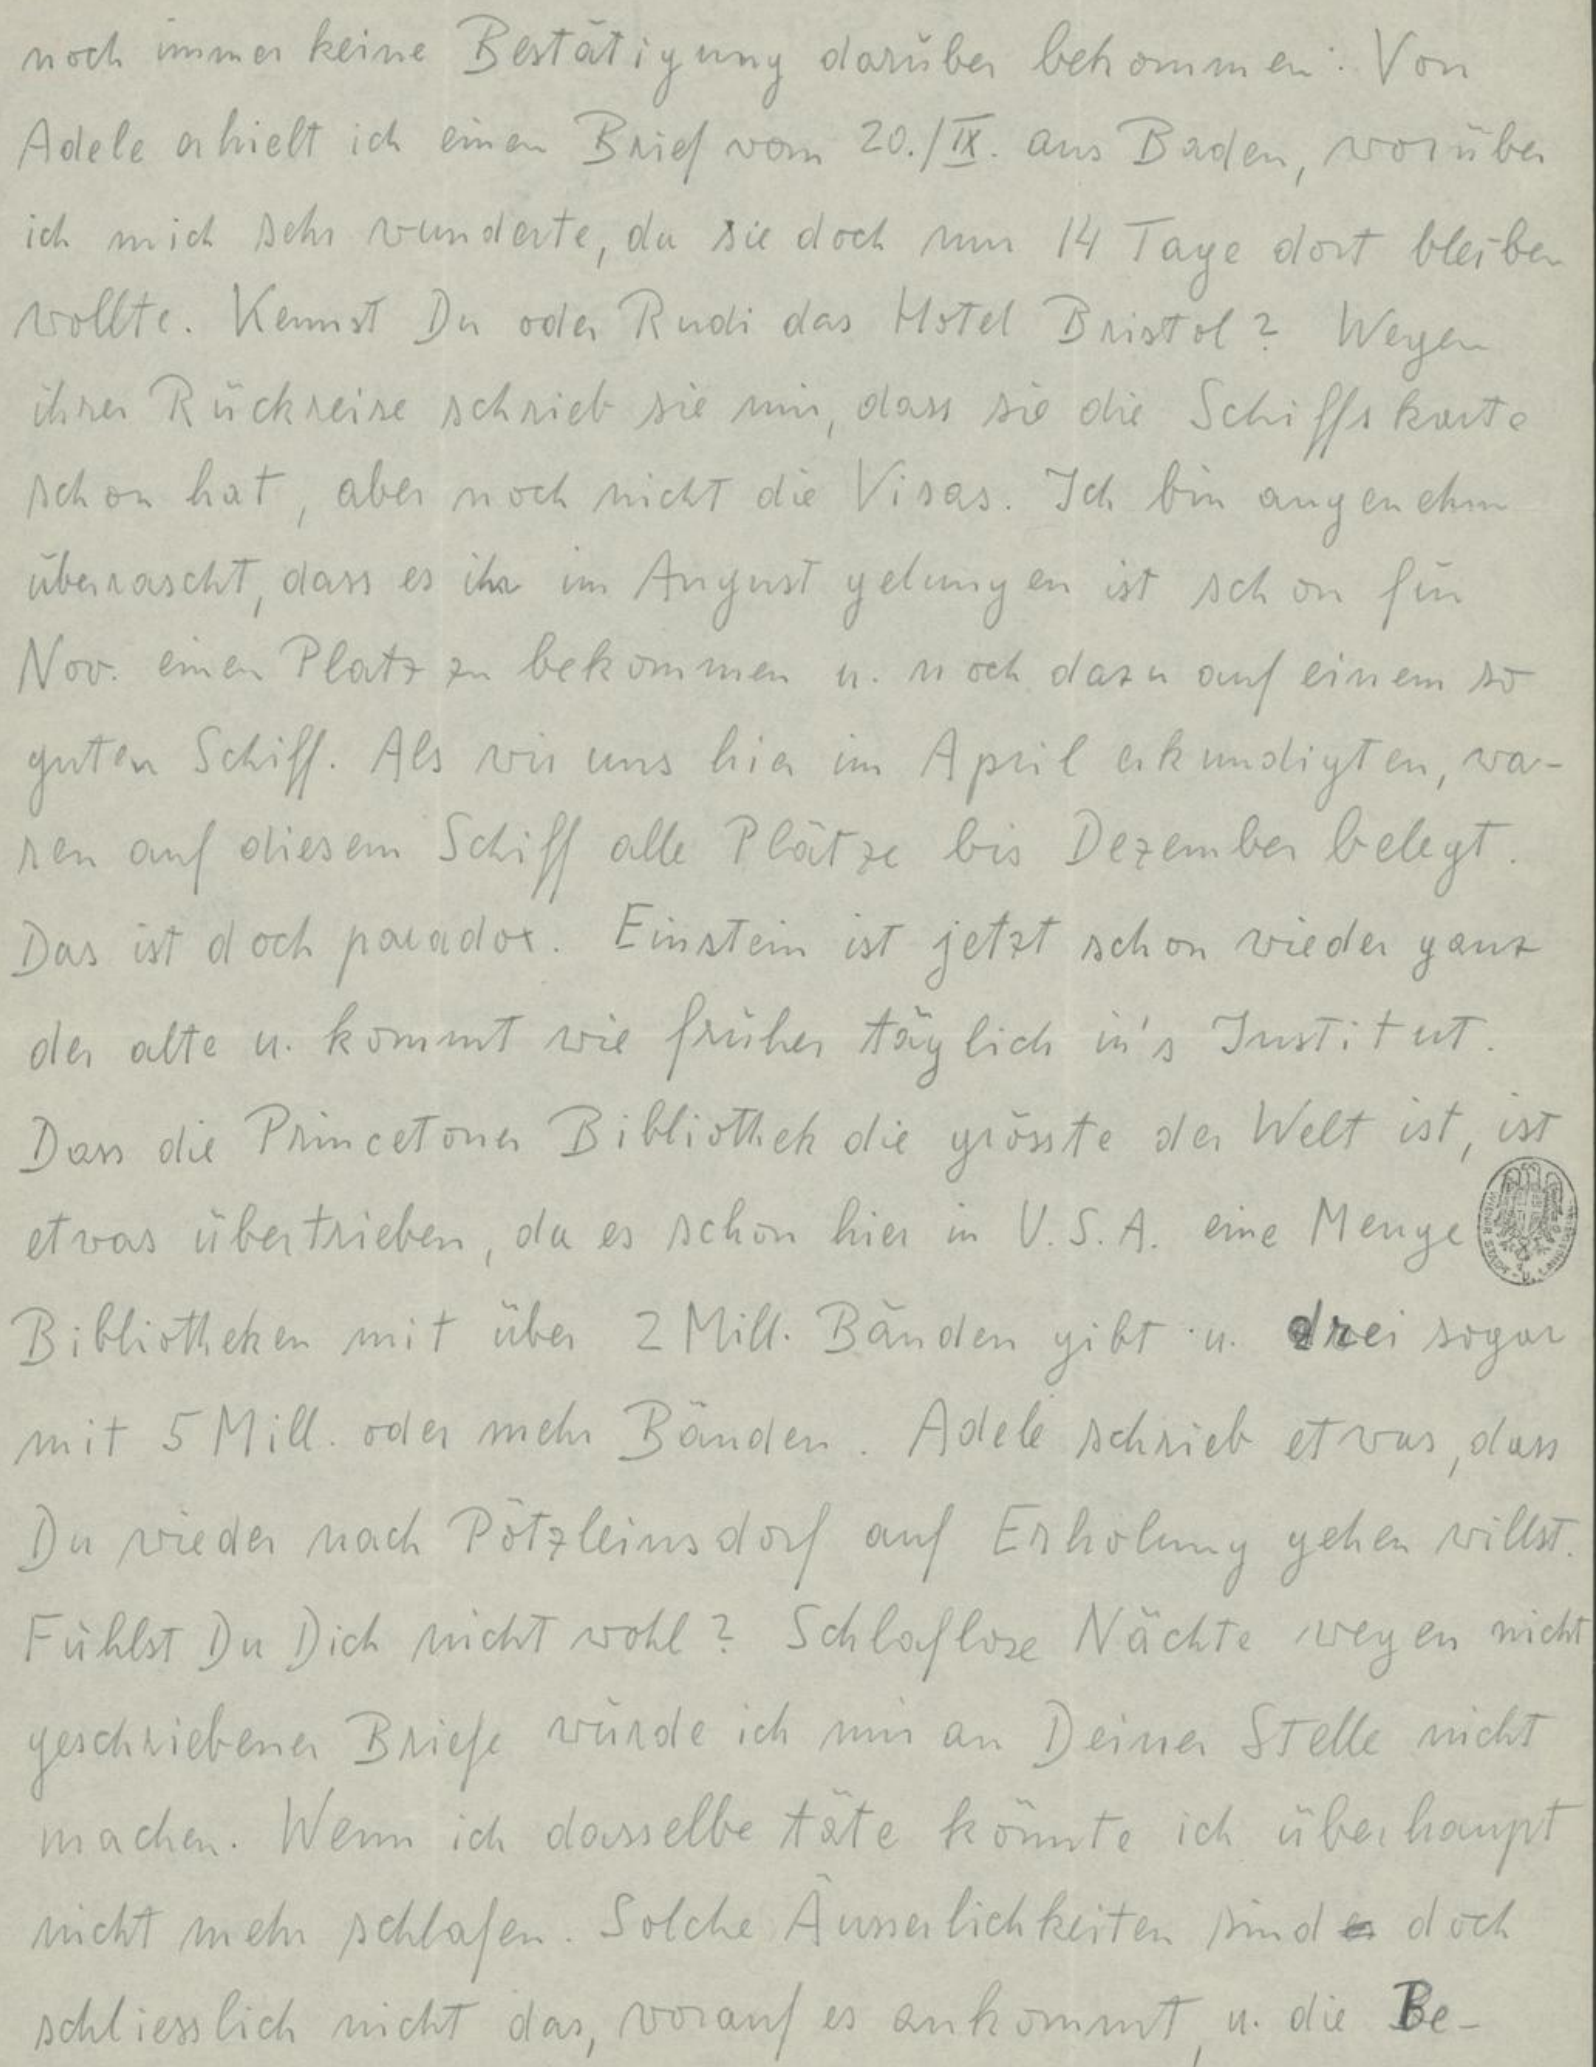 noch immer keine Bestätigung darüber bekommen. Von
Adele erhielt ich einen Brief vom 20./IX. aus Baden, worüber
ich mich sehr wunderte, da sie doch nur 14 Tage dort bleiben
wollte. Kennst Du oder Rudi das Hotel Bristol? Wegen
ihrer Rückreise schrieb sie mir, dass sie die Schiffskarte
schon hat, aber noch nicht die Visas. Ich bin angenehm
überrascht, dass es ihr im August gelungen ist schon für
Nov. einen Platz zu bekommen u. noch dazu auf einem so
guten Schiff. Als wir uns hier im April erkundigten, wa-
ren auf diesem Schiff alle Plätze bis Dezember belegt.
Das ist doch paradox. Einstein ist jetzt schon wieder ganz
der alte u. kommt wie früher täglich in's Institut.
Dass die Princetoner Bibliothek die grösste der Welt ist, ist
etwas übertrieben, da es schon hier in U.S.A. eine Menge
Bibliotheken mit über 2 Mill. Bänden gibt u. drei sogar
mit 5 Mill. oder mehr Bänden. Adele schrieb etwas, dass
Du wieder nach Pötzleinsdorf auf Erholung gehen willst.
Fühlst Du Dich nicht wohl? Schlaflose Nächte wegen nicht
geschriebener Briefe würde ich mir an Deiner Stelle nicht
machen. Wenn ich dasselbe täte könnte ich überhaupt
nicht mehr schlafen. Solche Äusserlichkeiten sind es doch
schliesslich nicht das, worauf es ankommt, u. die Be-